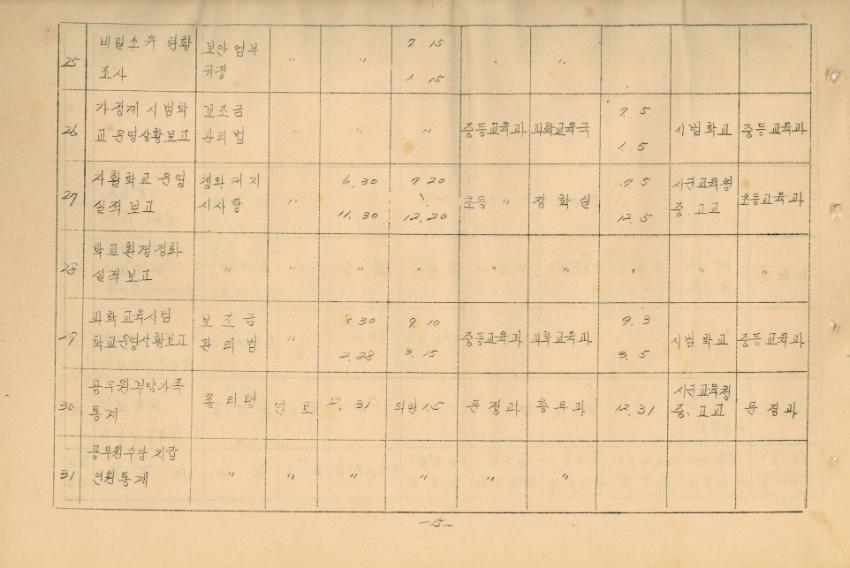 25 비밀소유현황 보안업무 〃 〃 7. 15 〃 〃
조사 규정 1. 15
26 가정계 시범학 보조금 〃 〃 〃 중등교육과 과학교육국 7. 5 시범학교 중등교육과
교 운영상황보고 관리법 1. 5
27 자활학교 운영 청와대지 〃 6. 30 7. 20 초등 〃 장학실 7. 5 시군교육청 초등교육과
실적보고 시사항 11. 30 12. 20 12. 5 중.고교
28 학교환경정화 〃 〃 〃 〃 〃 〃 〃 〃 〃
실적보고
29 과학교육시범 보조금 〃 8. 30 9. 10 중등교육과 과학교육과 9. 3 시범학교 중등교육과
학교운영상황보고 관리법 2. 28 3. 15 3. 5
30 공무원부양가족 총리령 연도 12. 31 1. 5 문정과 총무과 12. 31 시군교육청 문정과
통계 중.고교
31 공무원수당지급 〃 〃 〃 〃 〃 〃
인원통계
-15-